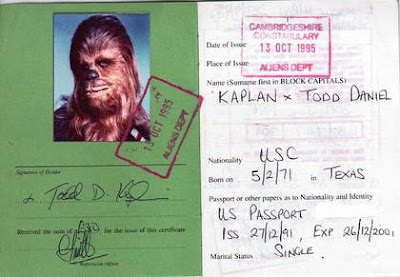 13 OCT 1995
ALIENS DEPT
Signature of Holder
Todd D. K
Received the sum of £30 for the issue of this certificate
Registration Officer
CAMBRIDGESHIRE
CONSTABULARY
Date of Issue
13 OCT 1995
Place of Issue
ALIENS DEPT
Name (Surname first in BLOCK CAPITALS)
KAPLAN x TODD DANIEL
Nationality USC
Born on 5/2/71 in TEXAS
Passport or other papers as to Nationality and Identity
US PASSPORT
ISS 27/12/91, EXP 26/12/2001
Marital Status SINGLE.